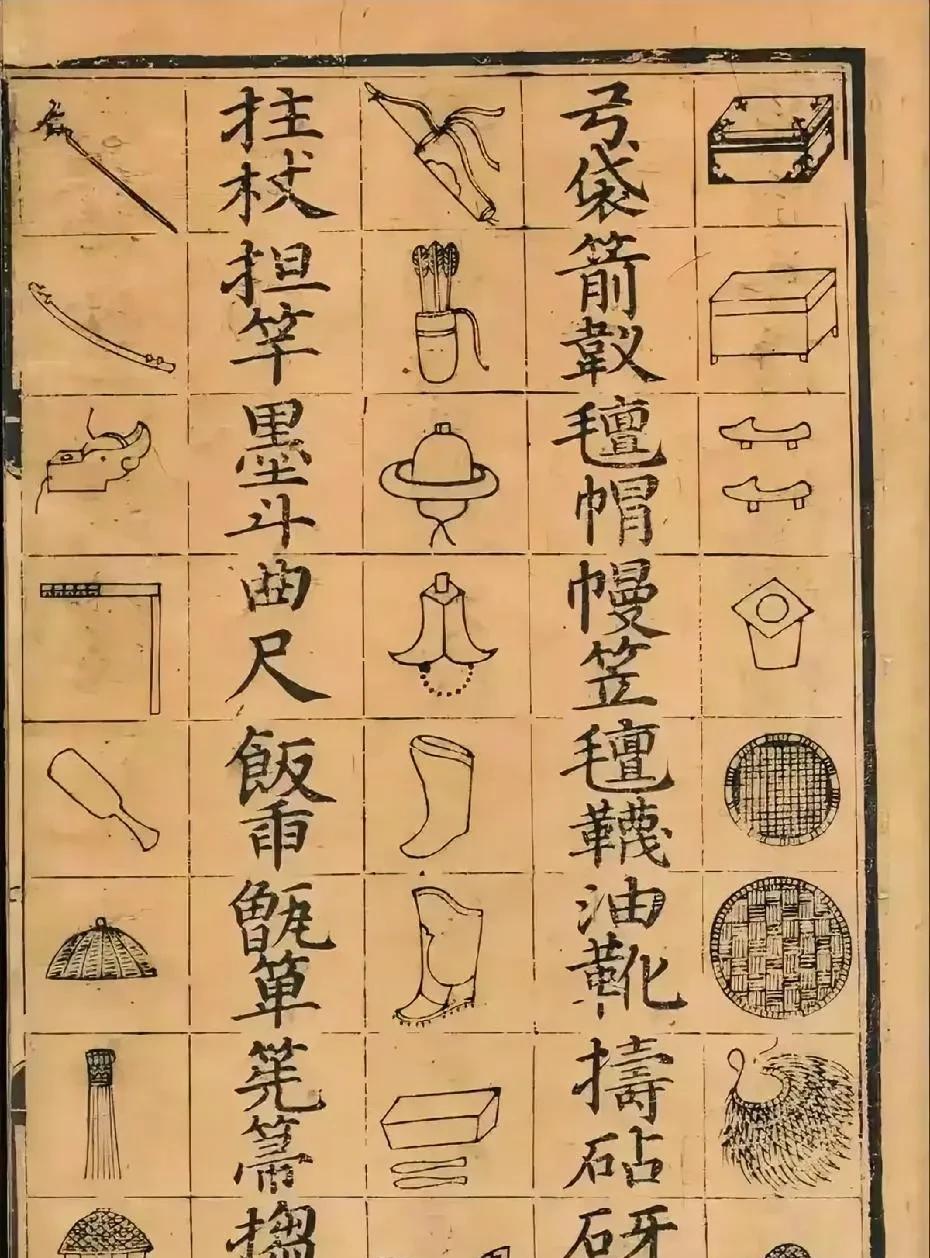 弓袋箭氊帽幔笠氊韈油靴擣砧砑
拄杖担竿墨斗曲尺飯甑筅箒